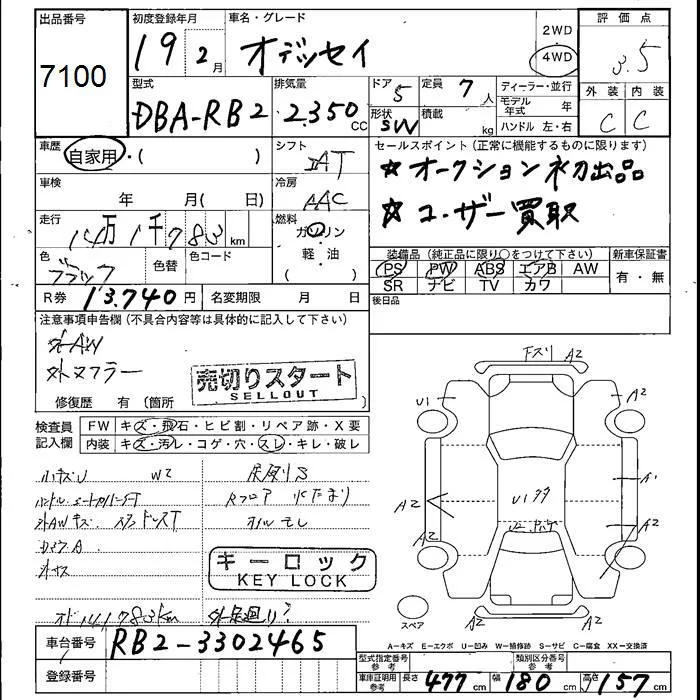 出品番号
7100
初度登録年月
19 2月
車名・グレード
オデッセイ
2WD
4WD
評価点
3.5
外装 内装
C C
型式
DBA-RB2
排気量
2.350 CC
ドア 5
形状 SW
定員 7人
積載 kg
ディーラー・並行
モデル年式 年
ハンドル 左・右
車歴
自家用・( )
シフト
IAT
セールスポイント(正常に機能するものに限ります)
☆オークション初出品
☆ユーザー買取
車検
年 月( 日)
冷房
AAC
走行
14万1千783km
燃料
ガソリン
軽・油
( )
色
ブラック
色替
色コード
装備品(純正品に限り○をつけて下さい)
PS PW ABS エアB AW
SR ナビ TV カワ
新車保証書
有・無
R券 13.740円
名変期限 月 日
後日品
注意事項申告欄(不具合内容等は具体的に記入して下さい)
外AW
外マフラー
売切りスタート
SELLOUT
修復歴 有(箇所
検査員記入欄
FW キズ・飛石・ヒビ割・リペア跡・X要
内装 キズ・汚レ・コゲ・穴・スレ・キレ・破レ
小キズU W2
外AWキズ
オイルモレ
キーロック
KEY LOCK
オド141783km
外足廻り?
車台番号
RB2-3302465
登録番号
A2
U1
A2
A1
A2
A2
A2
A2
A2
スペア
A-キズ E-エクボ U-凹み W-補修跡 S-サビ C-腐食 XX-交換済
型式指定番号 参考
類別区分番号 参考
車庫証明用 参考
長さ 477cm
幅 180cm
高さ 157cm